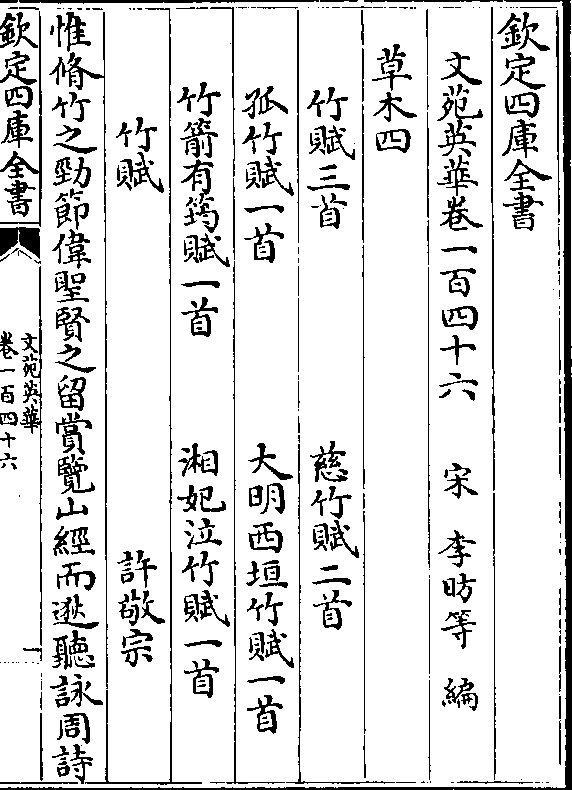 欽定四庫全書
文苑英華卷一百四十六 宋 李昉等 編
草木四
竹賦三首 慈竹賦二首
孤竹賦一首 大明西垣竹賦一首
竹箭有筠賦一首 湘妃泣竹賦一首
竹賦 許敬宗
惟脩竹之勁節偉聖賢之留賞覽山經而逖聽詠周詩
欽定四庫全書
文苑英華
卷一百四十六
一